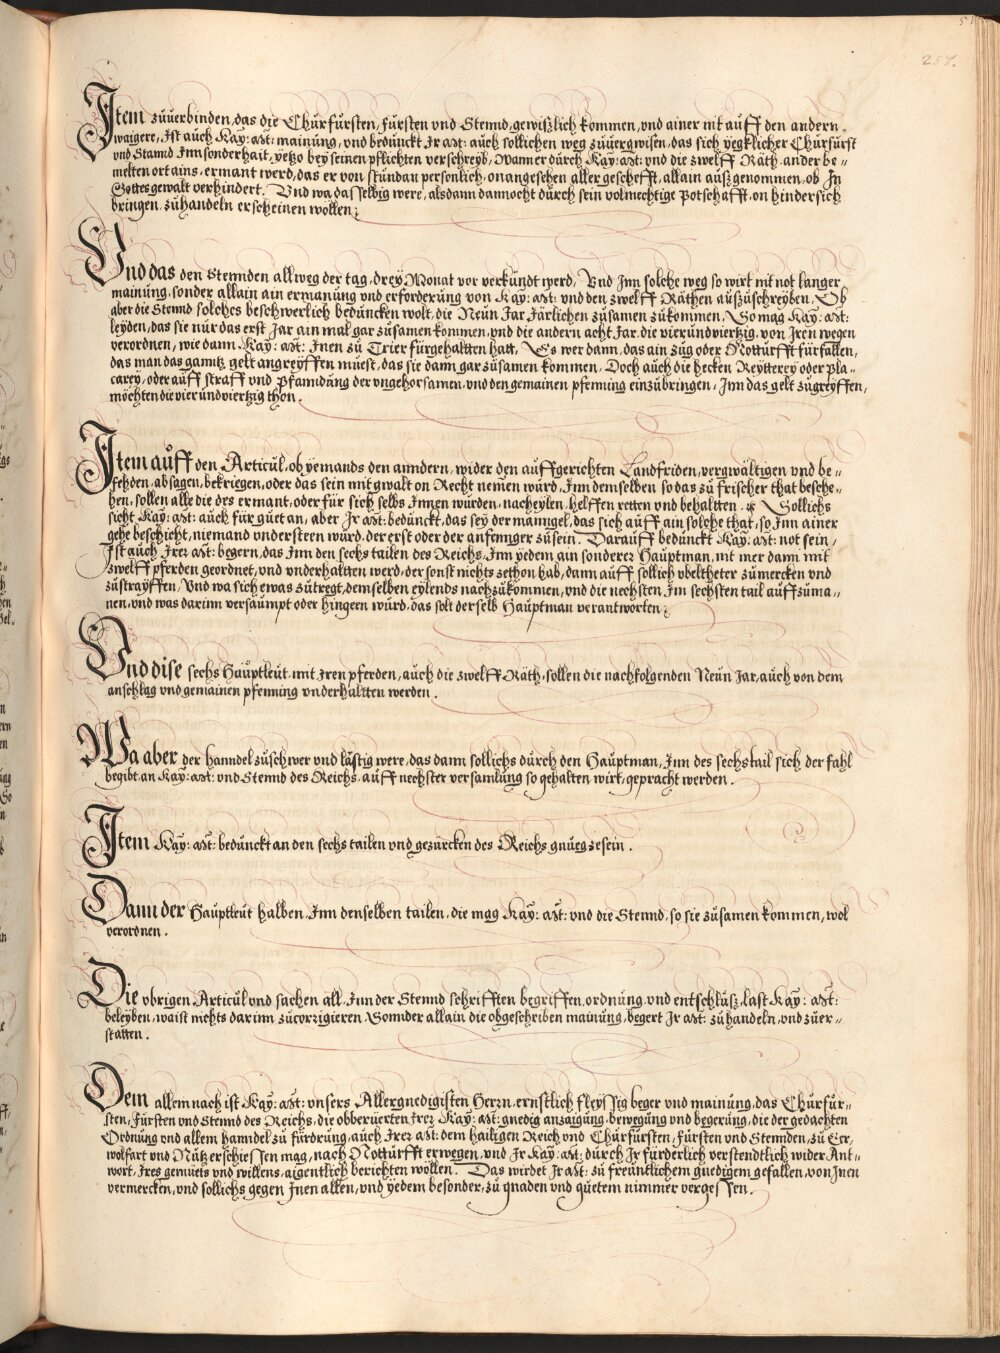 257.
Item zuuerbinden, das die Churfürsten, fürsten vnd Stennd, gewißlich kommen, vnd ainer nit auff den andern
waigere, Ist auch Kay: Mt: mainung, vnd bedunckt Ir Mt: auch sollichen weg zuuergwisen, das sich yegklicher Churfürst
vnd Stannd Innsonderhait, yetzo bey seinen pflichten verschreyb, Wann er durch Kay: Mt: vnd die zwelff Räth ander be=
melten ort ains, ermant werd, das er von stundan personlich, onangesehen aller gescheft, allain außgenomen, ob In
Gottes gewalt verhindert. Vnd wa dasselbig were, alsdann dannocht durch sein volmechtige potschafft, on hindersich
bringen, zuhandeln erscheinen wollen.
Vnd das den Stennden allweg der tag, drey Monat vor verkundt werd, Vnd Inn solche weg so wirt nit not langer
mainung, sonder allain ain ermanung vnd erforderung von Kay: Mt: vnd den zwelff Räthen außzuschreyben. Ob
aber die Stennd solches beschwerlich beduncken wolt, die Neun Jar Järlichen zusamen zukommen, So mag Kay: Mt:
leyden, das sie nur das erst Jar ain mal gar zusamen kommen, vnd die andern acht Jar, die vierundviertzig, von Iren wegen
verordnen, wie dann Kay: Mt: Inen zu Trier fürgehaltten hatt, Es wer dann, das ain zug oder Notturfft fürfallen,
das man das ganntz gelt angreyffen muest, das sie dann gar zusamen kommen, Doch auch die hecken Reytterey oder pla=
carey, oder auff straff vnd Pfanndung der vngehorsamen, vnd den gemainen pfenning einzubringen, Inn das gelt zugreyffen,
möchten die vierundviertzig thon.
Item auff den Articul, ob yemands den anndern, wider den auffgerichten Landfriden, vergwältigen vnd be=
fehden, absagen, bekriegen, oder das sein mit gwalt on Recht nemen würd, Inn demselben so das zu frischer that besche=
hen, sollen alle die des ermant, oder für sich selbs Innen würden, nacheylen, helffen retten vnd behaltten. Sollichs
sicht Kay: Mt: auch für guet an, aber Ir Mt: bedunckt, das sey der manngel, das sich auff ain solche that, so Inn ainer
gehe beschicht, niemand vndersteen würd, der erst oder der anfennger zusein. Darauff bedunckt Kay: Mt: not sein,
Ist auch Irer Mt: begern, das Inn den sechs tailen des Reichs, Inn yedem ain sonderer Hauptman, nit mer dann mit
zwelff pferden geordnet, vnd vnderhaltten werd, der sonst nichts zethon hab, dann auff sollich vbeltheter zumercken vnd
zustrayffen, Vnd wa sich ewas zutregt, demselben eylends nachzukommen, vnd die nechsten Im sechsten tail auffzuma=
nen, vnd was darinn versaumpt oder hingeen würd, das solt derselb Hauptman verantworten.
Vnd dise sechs Hauptleut, mit Iren pferden, auch die zwelff Räth, sollen die nachfolgenden Neun Jar, auch von dem
anschlag vnd gemainen pfenning vnderhaltten werden.
Wa aber der hanndel zuschwer vnd lästig were, das dann sollichs durch den Hauptman, Inn des sechstail sich der fahl
begibt, an Kay: Mt: vnd Stennd des Reichs, auff nechster versamlung so gehalten wirt, gepracht werden.
Item Kay: Mt: bedunckt an den sechs tailen vnd gezurcken des Reichs gnueg zesein.
Dann der Hauptleut halben, Inn denselben tailen, die mag Kay: Mt: vnd die Stennd, so sie zusamen kommen, wol
verordnen.
Die vbrigen Articul vnd sachen all, Inn der Stennd schrifften begriffen, ordnung vnd entschluß, last Kay: Mt:
beleyben, waist nichts darinn zucorrigieren, Sonnder allain die obgeschriben mainung, begert Ir Mt: zuhandeln, vnd zuer=
statten.
Dem allem nach ist Kay: Mt: vnsers Allergnedigisten Herrn, ernstlich fleyssig beger vnd mainung, das Churfür=
sten, Fürsten vnd Stennd des Reichs, die obberuerten Irer Kay: Mt: gnedig anzaigung, bewegung vnd begerung, die der gedachten
Ordnung vnd allem hanndel zu fürdrung, auch Irer Mt: dem hailigen Reich vnd Churfürsten, Fürsten vnd Stennden, zu Eer,
wolfart vnd Nutz erschiessen mag, nach Notturfft erwegen, vnd Ir Kay: Mt: durch Ir fürderlich verstendtlich wider Ant=
wort, Ires gemuets vnd willens, aigentlich berichten wöllen. Das wirdet Ir Mt: zu freuntlichem gnedigem gefallen, von Inen
vermercken, vnd sollichs gegen Inen allen, vnd yedem besonder, zu gnaden vnd guetem nimmer vergessen.